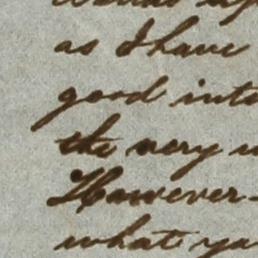 as I have
good inte
the very
However-
what